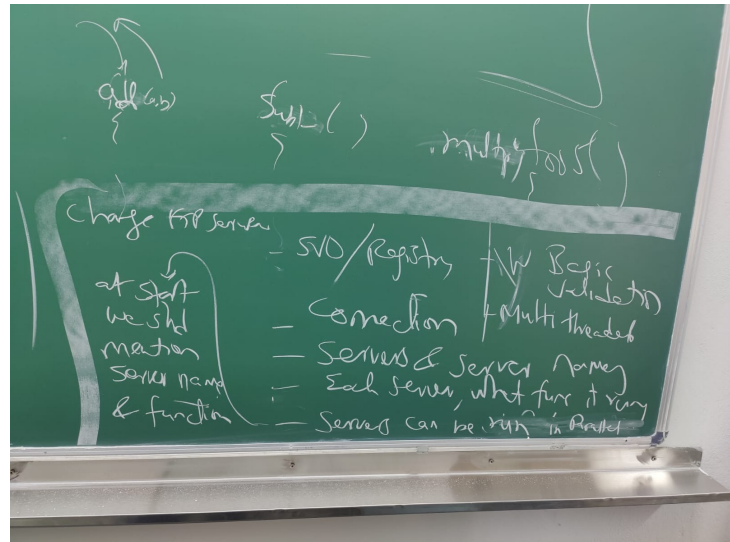 add(a,b)
{
Subt ( )
{
{
Change FTP server
at start
we shd
mention
server name
& function
- SVD/Registry
- Connection
- Servers & server names
- Each server, what func it
- Servers can be in Parallel
Basic
validation
- Multithreaded